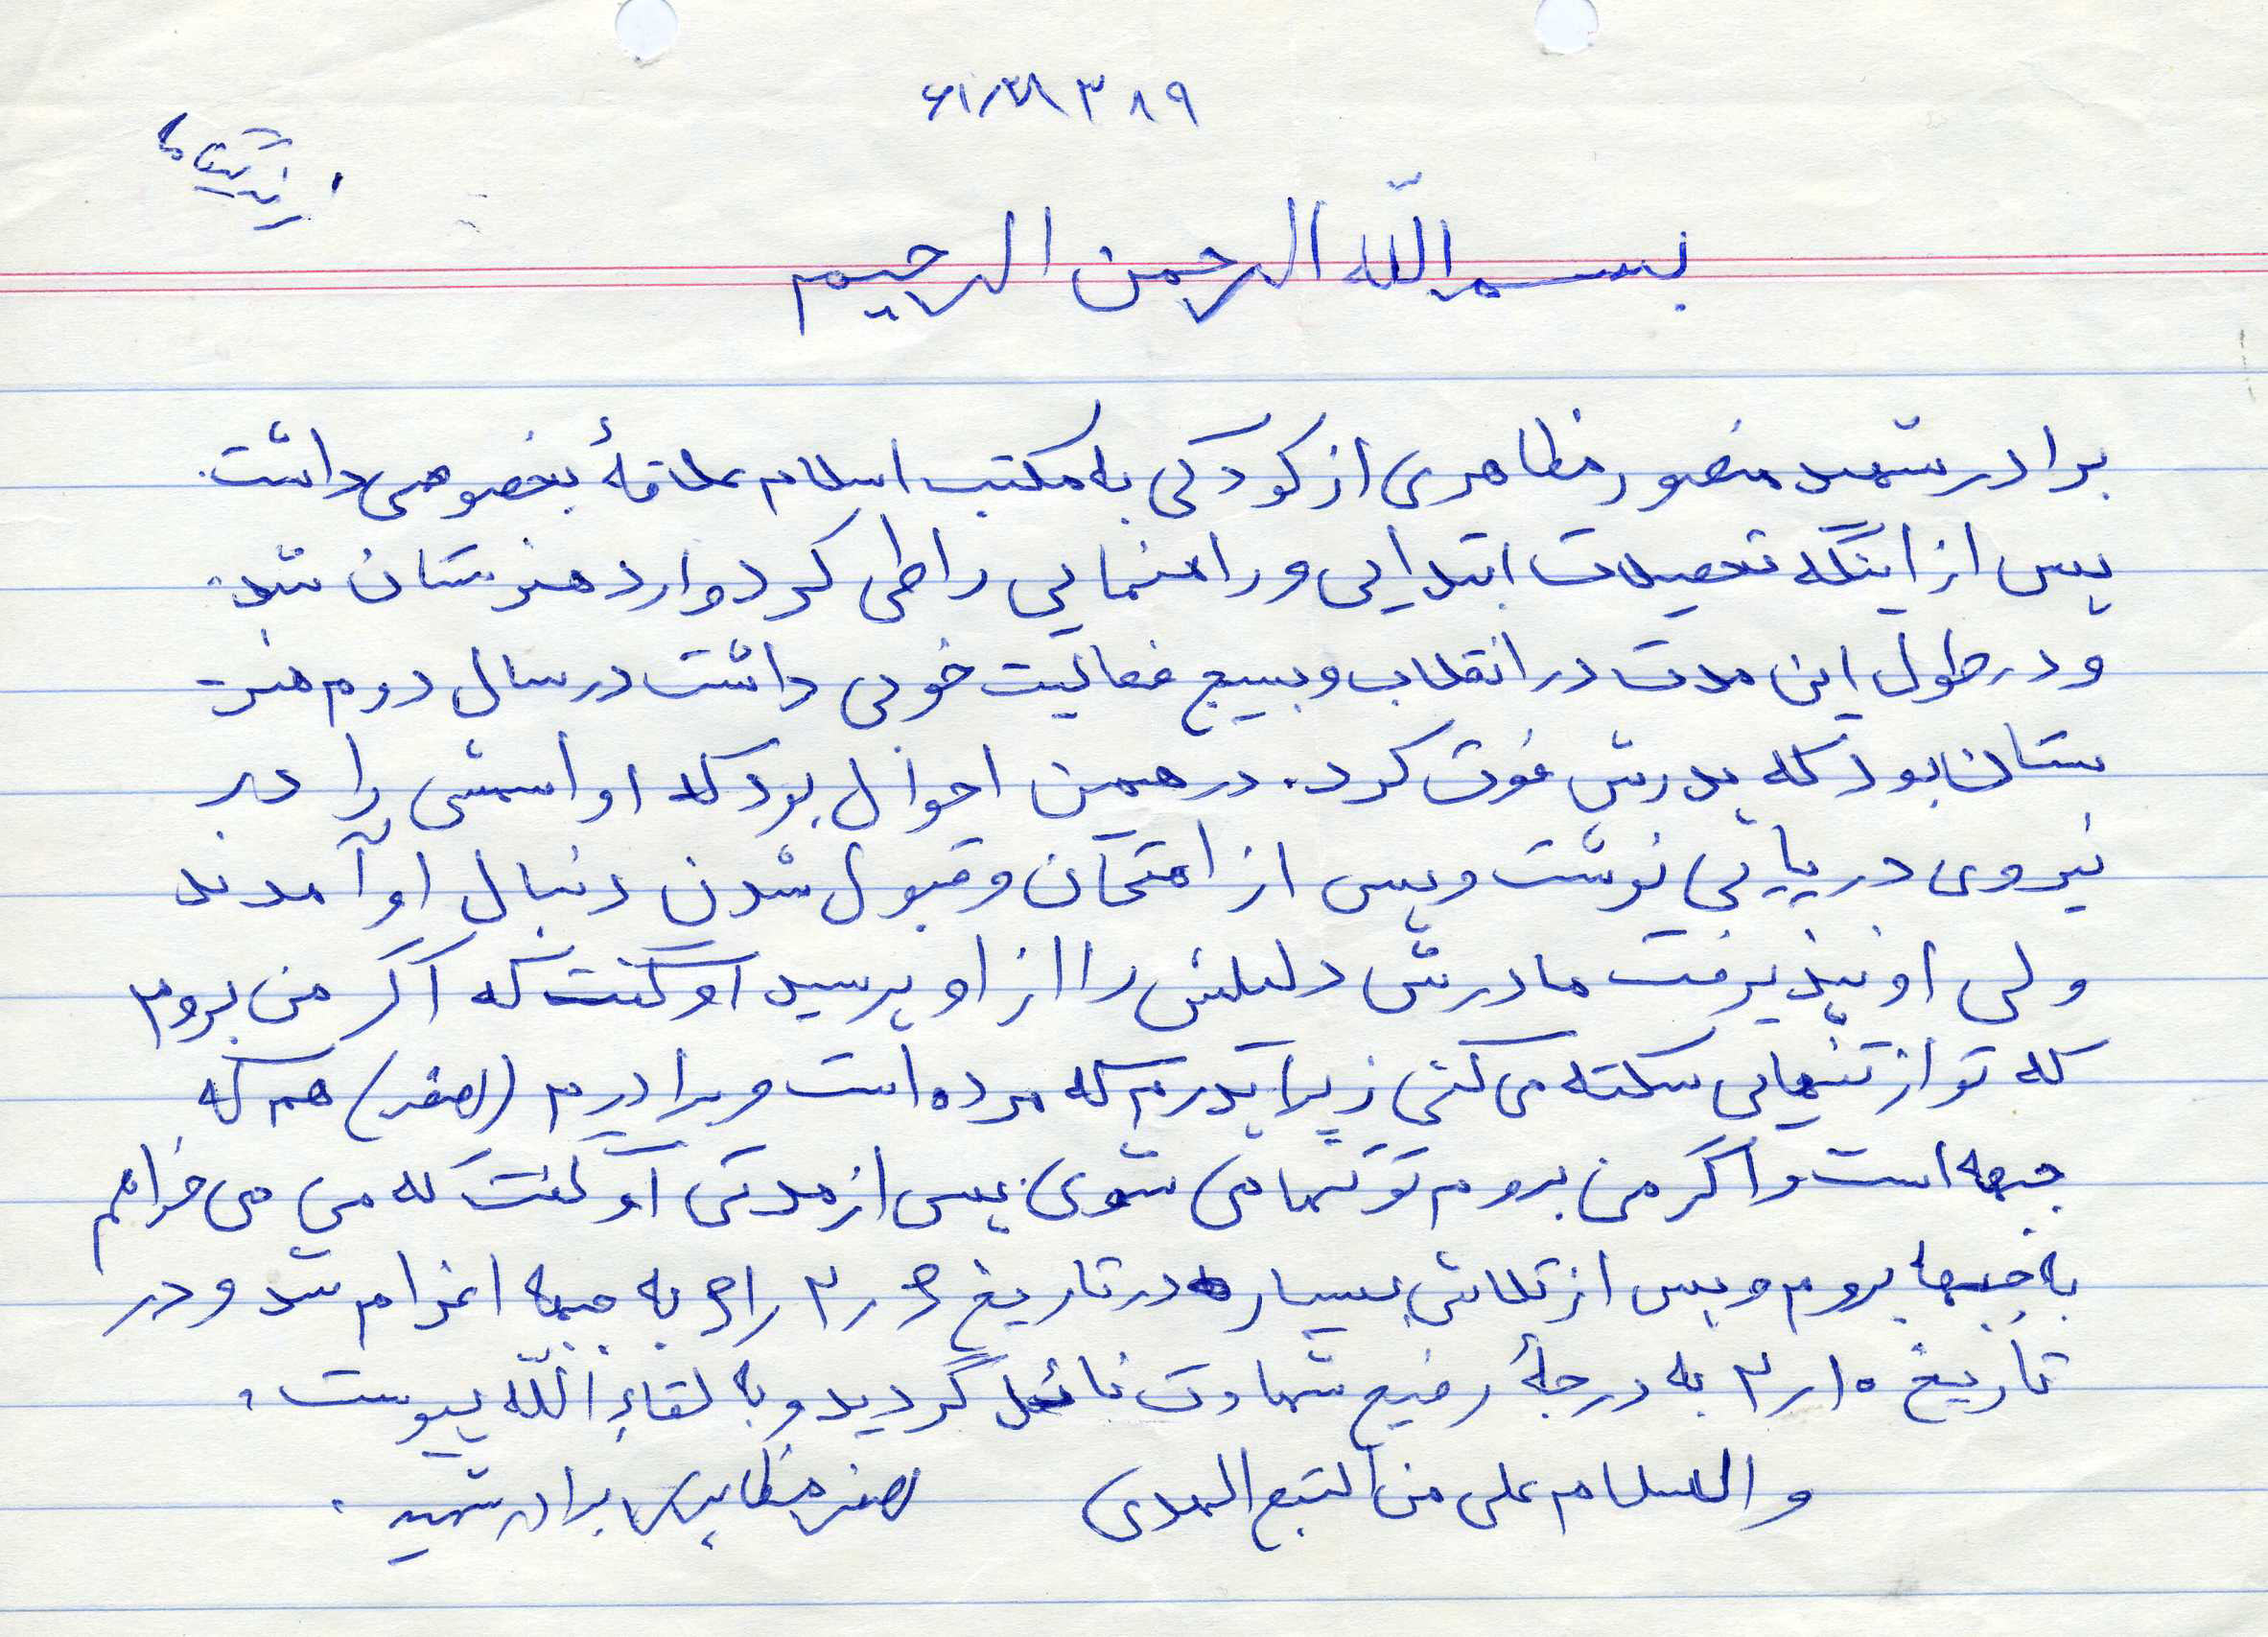 بسم اللّه الرحمن الرحیم
برادر شهید منصور مظاهری از کودکی به مکتب اسلام علاقهٔ بخصوصی داشت.
پس از اینکه تحصیلات ابتدایی و راهنمایی را طی کرد وارد هنرستان شد.
و در طول این مدت در انقلاب و بسیج فعالیت خوبی داشت در سال دوم هنر-
ستان بود که پدرش فوت کرد. در همین احوال بود که او اسمش را در
نیروی دریایی نوشت و پس از امتحان و قبول شدن دنبال او آمدند
ولی او نپذیرفت مادرش دلیلش را از او پرسید او گفت که اگر من بروم
که تو از تنهایی سکته می کنی زیرا پدرم که مرده است و برادرم (اصغر) هم که
جبهه است و اگر من بروم تو تنها می شوی. پس از مدتی او گفت که من می خواهم
به جبهه بروم و پس از تلاش بسیار در تاریخ به جبهه اعزام شد و در
تاریخ ۱۰ر۲ به درجهٔ رفیع شهادت نائل گردید و به لقاء اللّه پیوست.
والسلام علی من التبع الهدی اصغر مظاهری برادر شهید.